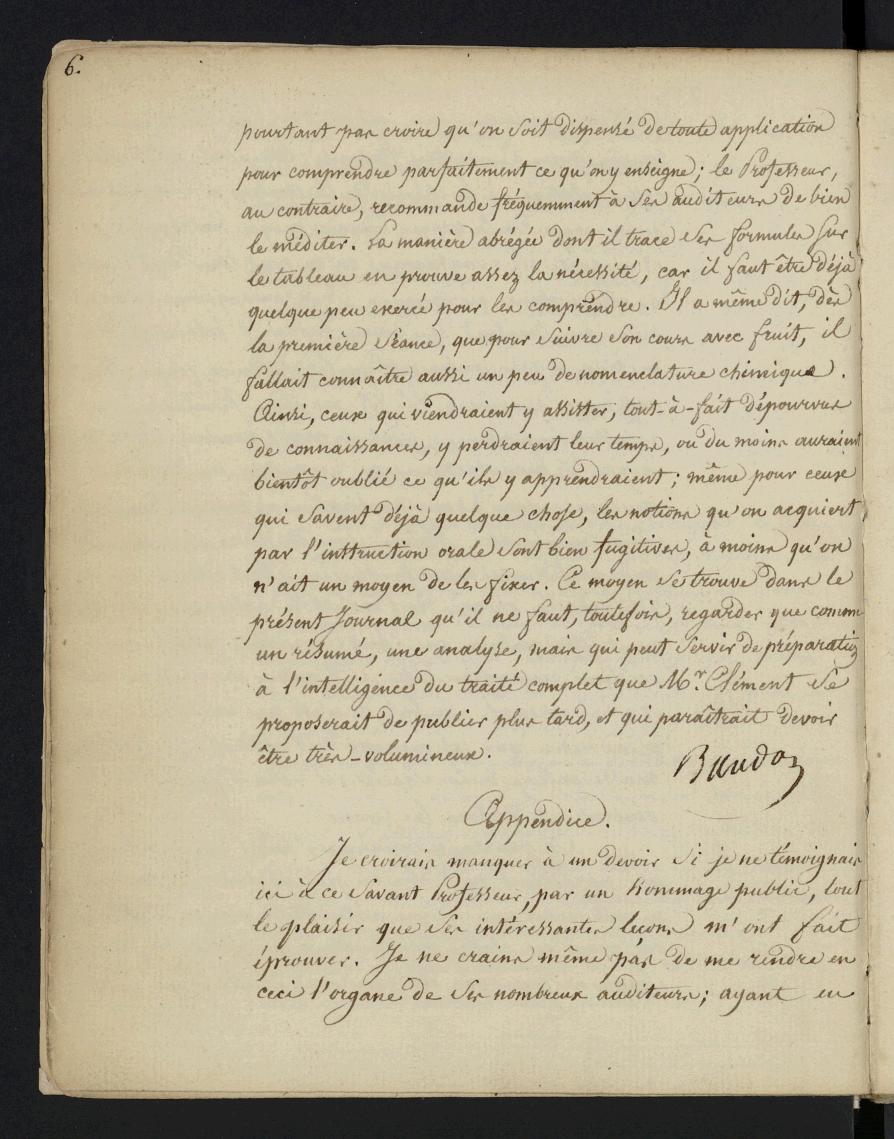 6.
pourtant pas croire qu'on soit dispensé de toute application
pour comprendre parfaitement ce qu'on y enseigne; le Professeur,
au contraire, recommande fréquemment à ses auditeurs de bien
le méditer. La manière abrégée dont il trace ses formules sur
le tableau en prouve assez la nécessité, car il faut être déjà
quelque peu exercé pour les comprendre. Il a même dit, dès
la première séance, que pour suivre son cours avec fruit, il
fallait connaître aussi un peu de nomenclature chimique.
Ainsi, ceux qui viendraient y assister, tout-à-fait dépourvus
de connaissances, y perdraient leur temps, ou du moins auraient
bientôt oublié ce qu'ils y apprendraient; même pour ceux
qui savent déjà quelque chose, les notions qu'on acquiert
par l'instruction orale sont bien fugitives, à moins qu'on
n'ait un moyen de les fixer. Ce moyen se trouve dans le
présent Journal qu'il ne faut, toutefois, regarder que comme
un résumé, une analyse, mais qui peut servir de préparation
à l'intelligence du traité complet que Mr. Clément se
proposerait de publier plus tard, et qui paraîtrait devoir
être très-volumineux.
Baudo
Appendice.
Je croirais manquer à un devoir si je ne témoignais
ici à ce savant Professeur, par un hommage public, tout
le plaisir que ses intéressantes leçons m'ont fait
éprouver. Je ne crains même pas de me rendre en
ceci l'organe de ses nombreux auditeurs; ayant eu